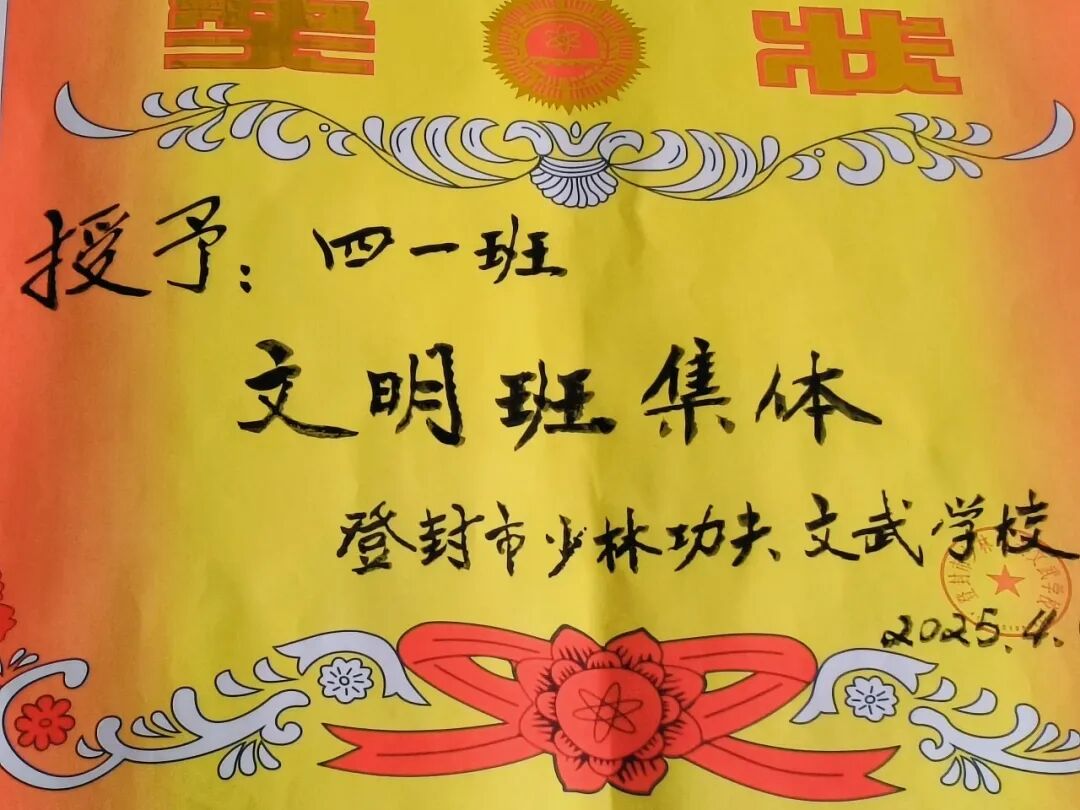 奖状
授予：四一班
文明班集体
登封市少林功夫文武学校
2025.4.